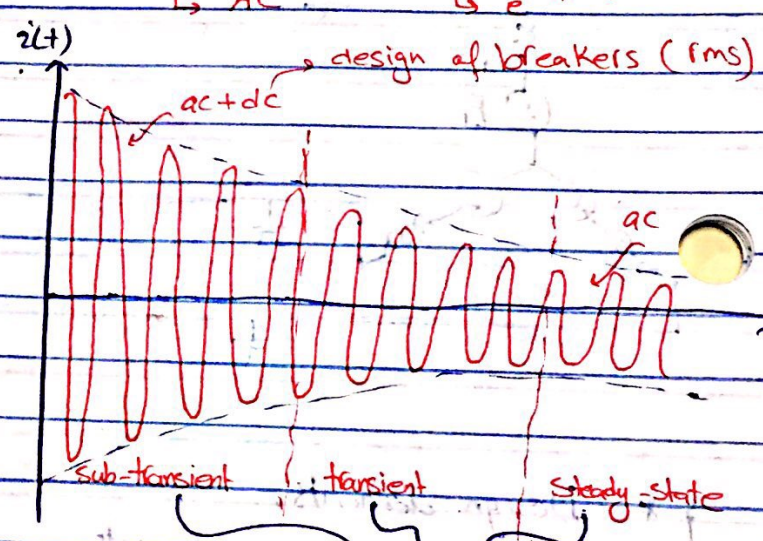 ↳ AC ↳ e
i(t)
design of breakers (rms)
ac+dc
ac
sub-transient transient steady-state